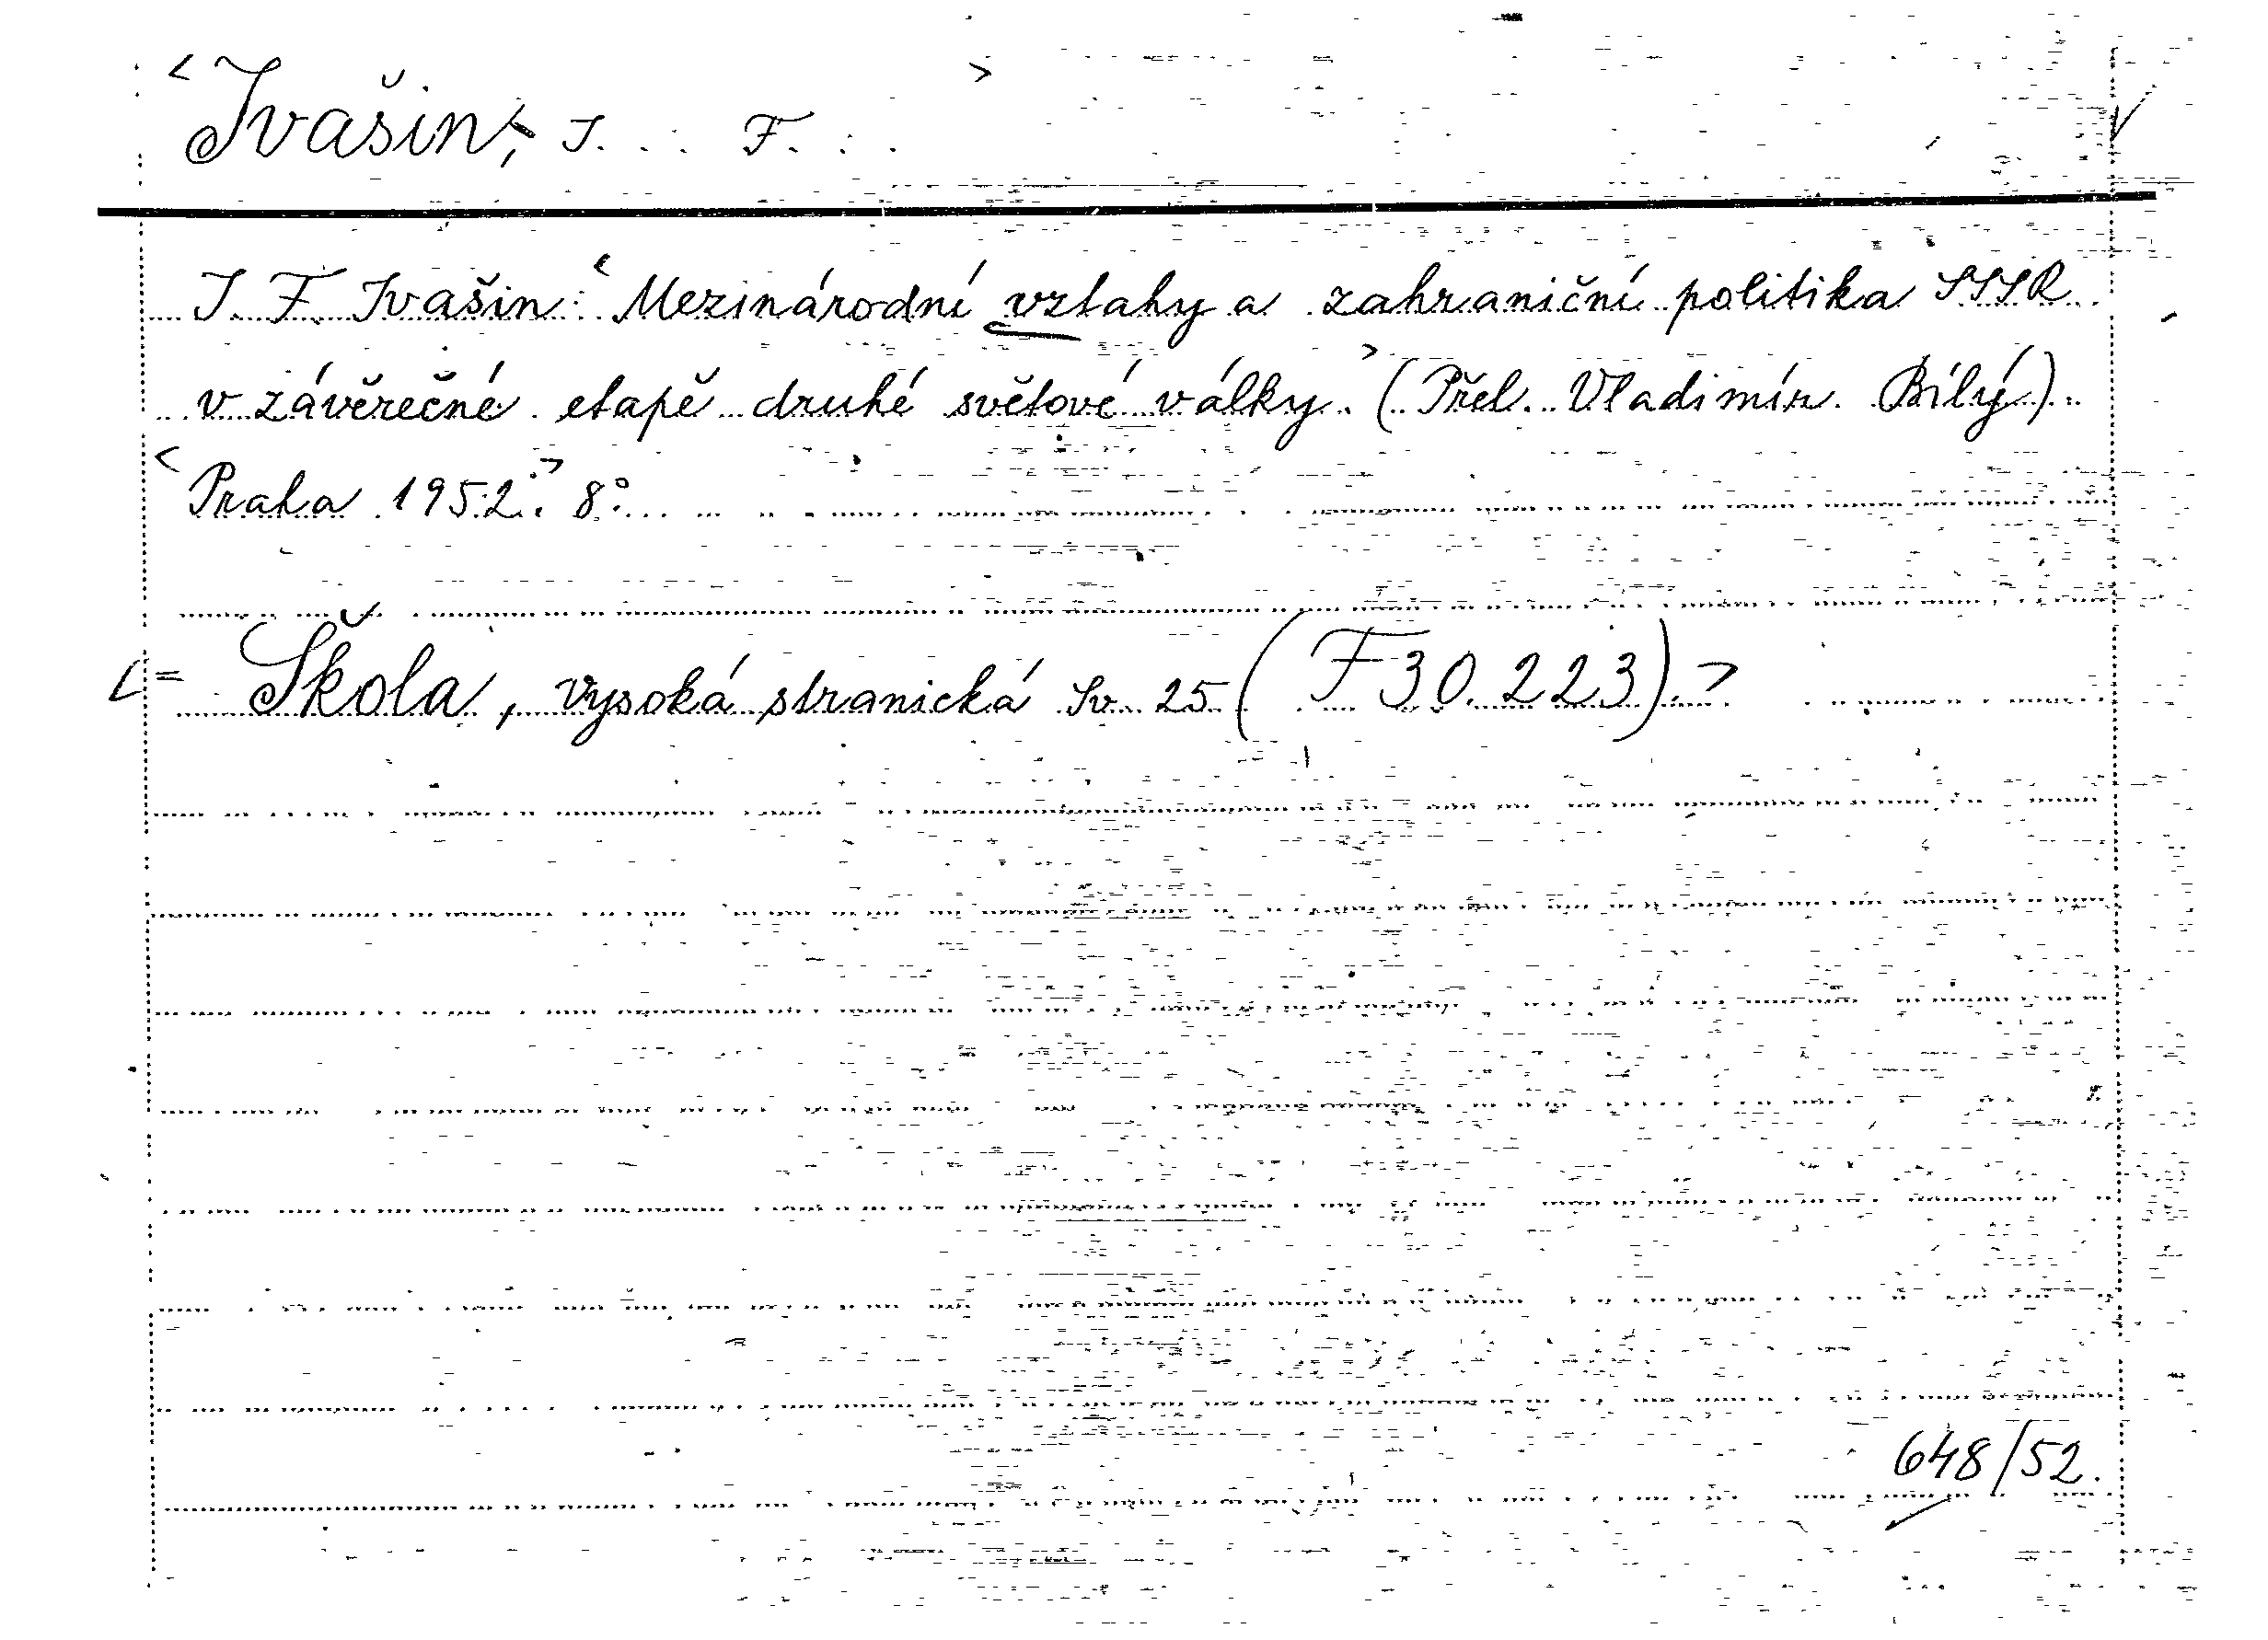 <Ivašin, I. : F. : .>
I. F. Ivašin: <Mezinárodní vztahy a zahraniční politika SSSR
v závěrečné etapě druhé světové války.> (Přel. Vladimír Bílý).
<Praha 1952.> 8°.
<= Škola, vysoká stranická Sv. 25 (F 30.223).>
648/52.